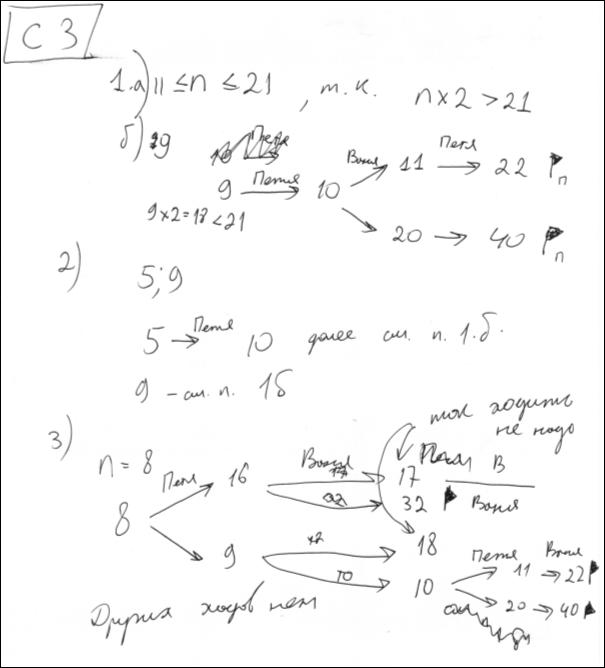 С 3
1.а) 11 ≤ n ≤ 21, т.к. n×2 > 21
б) 9
9 Петя → 10 Ваня → 11 Петя → 22 п
→ 20 → 40 п
9×2=18<21
2) 5; 9
5 Петя → 10 далее см. п. 1.б.
9 – см. п. 1б
3) так ходить
не надо
n = 8
8 Петя → 16 Ваня → 17 В
→ 32 Ваня
→ 9 ×2 → 18
→ 10 Петя → 11 Ваня → 22
→ 20 → 40
Других ходов нет